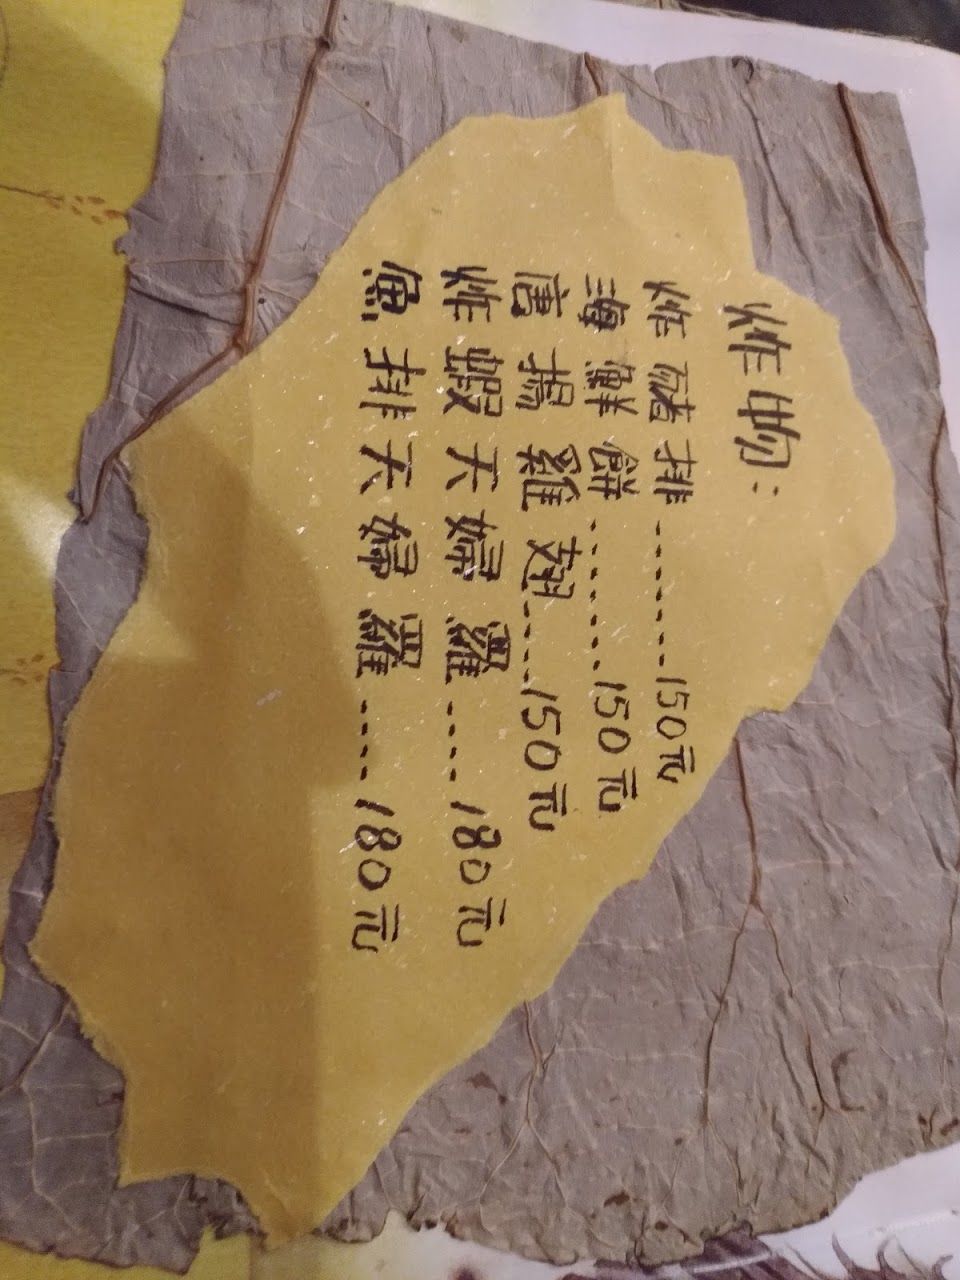 炸物:
炸豬排........150元
海鮮餅........150元
唐揚雞翅.....150元
炸蝦天婦羅....180元
魚排天婦羅.....180元